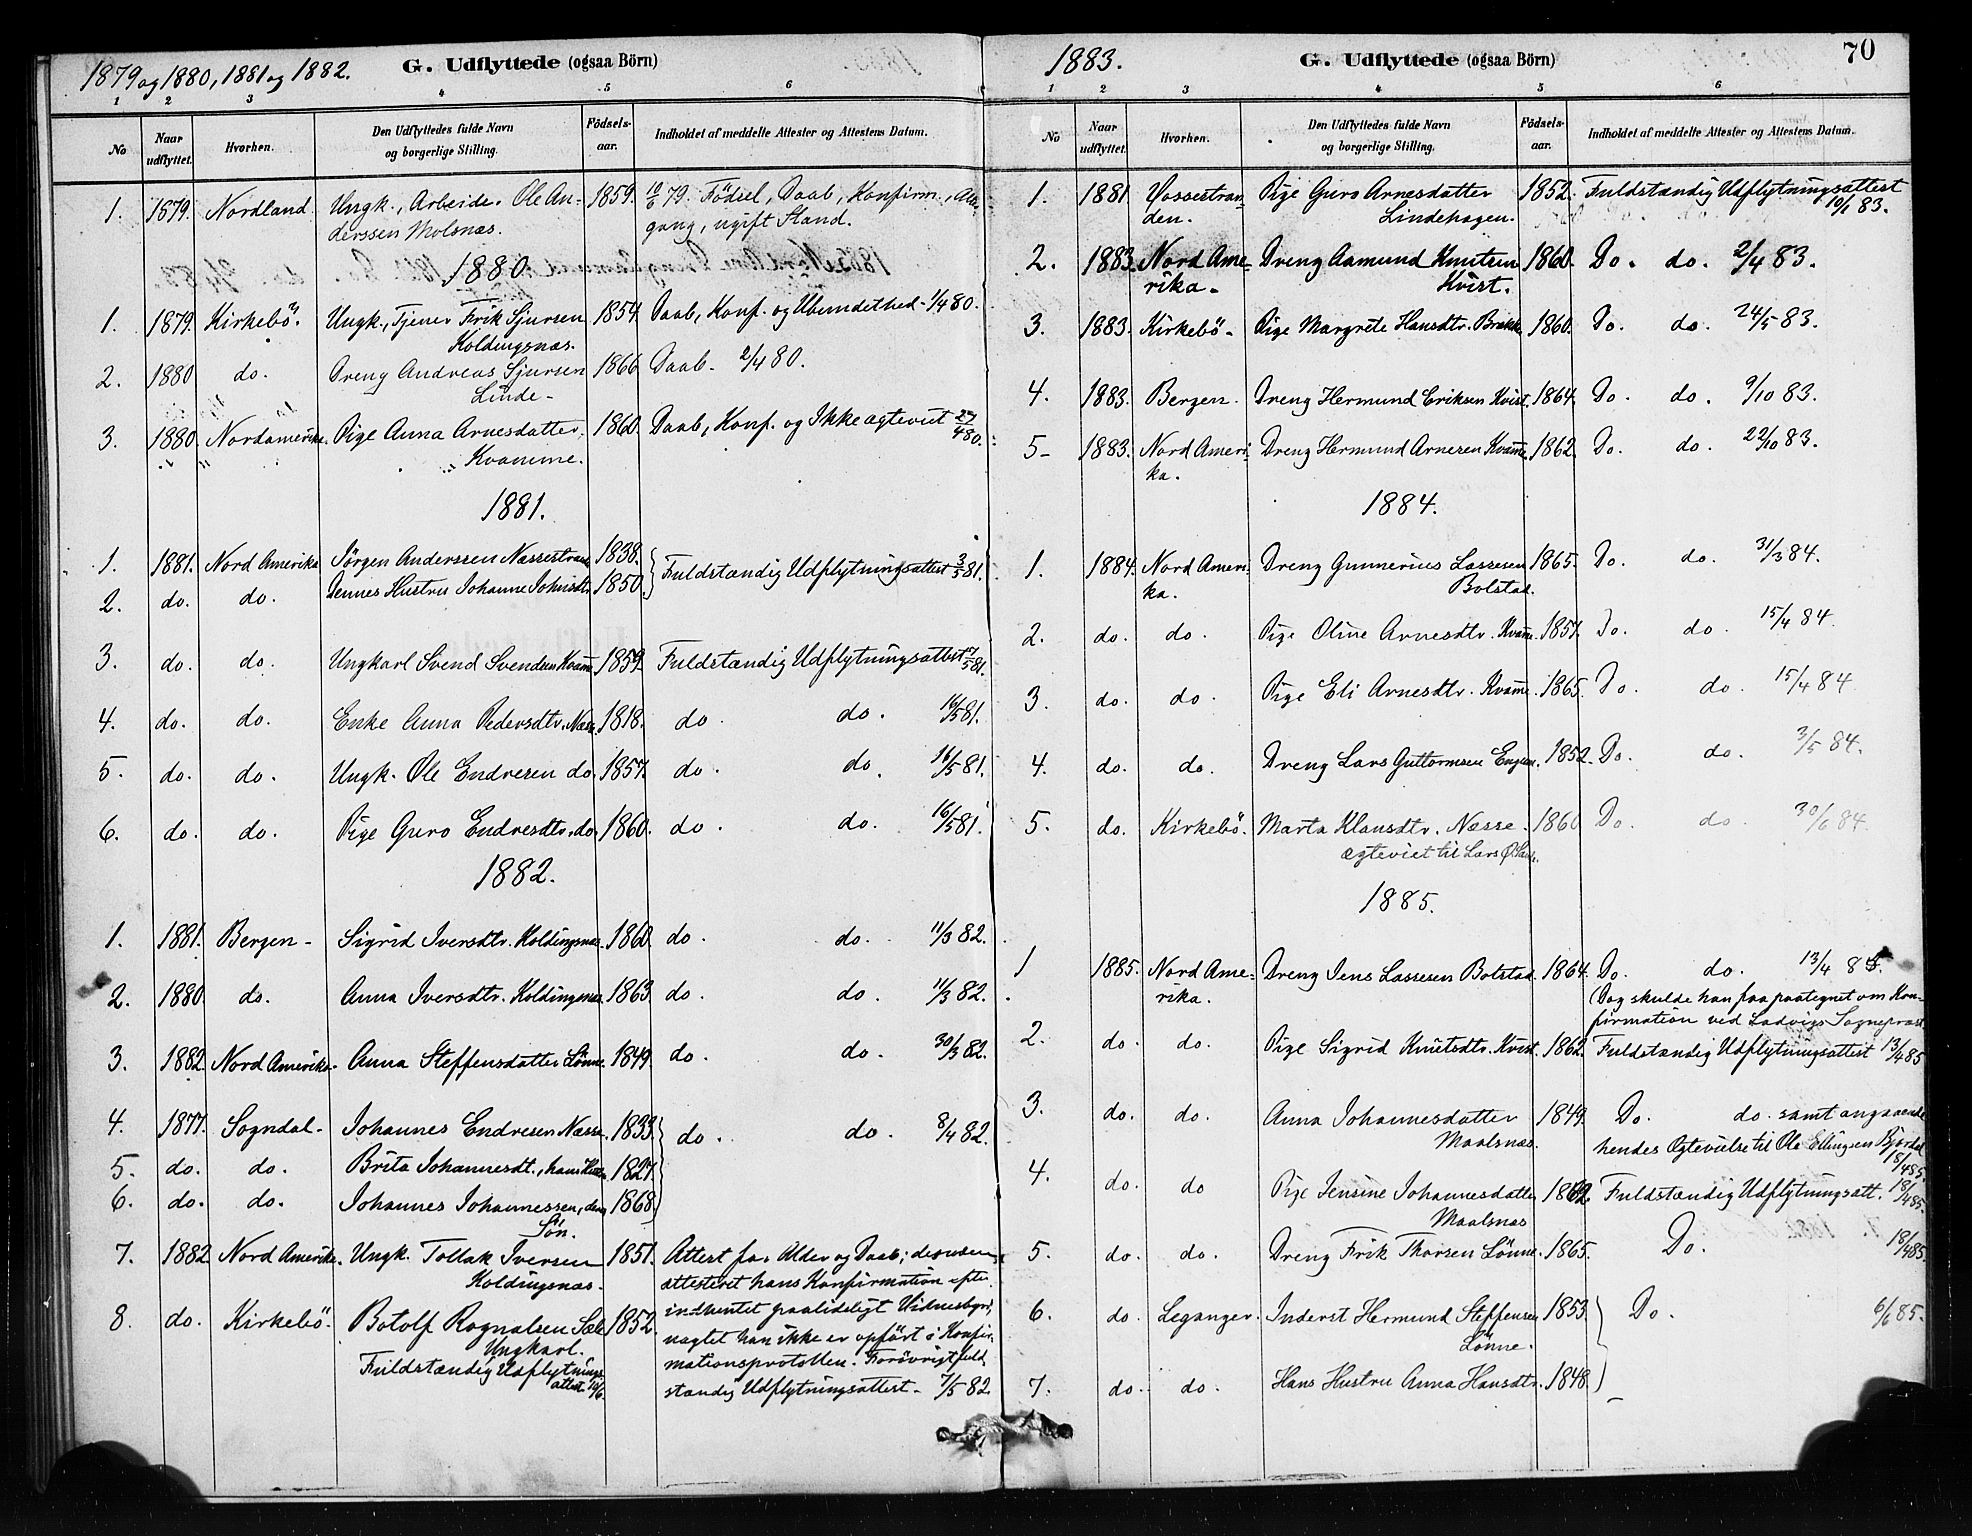 1879 og 1880, 1881 og 1882. G. Udflyttede (ogsaa Börn)
1 2 3 4 5 6
No Naar udflyttet. Hvorhen. Den Udflyttedes fulde Navn og borgerlige Stilling. Födsels-aar. Indholdet af meddelte Attester og Attestens Datum.
1. 1879. Nordland. Ungk., Arbeider Ole An- 1859. 10/6 79. Födsel, Daab, Konfirm.,
derssen Molsnæs. gang, ugift Stand.
1880.
1. 1879. Kirkebö. Ungk., Tjener Erik Sjursen 1854. Daab, Konf. og Ubundethed 1/4 80.
Koldingsnæs.
2. 1880 do. Dreng Andreas Sjursen 1866 Daab. 2/4 80.
Linde
3. 1880. Nordamerika. Pige Anna Arnesdatter 1860. Daab, Konf. og Ikke ægteviet 27/4 80.
Kvamme.
1881.
1. 1881. Nord Amerika Jörgen Anderssen Næssestrand 1838. Fuldstændig Udflytningsattest 3/5 81.
2. do. do. Dennes Hustru Johanne Johnsdtr. 1850.
3. do. do. Ungkarl Svend Svendsen Kvamme 1859. Fuldstændig Udflytningsattest 7/5 81.
4. do. do. Enke Anna Pedersdtr. Næsse 1818. do. do. 16/5 81.
5. do. do. Ungk. Ole Endresen do. 1857. do. do. 16/5 81.
6. do. do. Pige Guro Endresdtr. do. 1860. do. do. 16/5 81.
1882.
1. 1881. Bergen Sigrid Iversdtr. Koldingsnæs. 1860. do. do. 11/3 82.
2. 1880. do. Anna Iversdtr. Koldingsnæs 1863. do. do. 11/3 82.
3. 1882. Nord Amerika Anna Steffensdatter Lönne. 1849. do. do. 30/3 82.
4. 1877. Sogndal Johannes Endresen Næsse. 1833. do. do. 8/4 82.
5. do. do. Brita Johannesdt., hans Hustru 1827.
6. do. do. Johannes Johannessen, deres 1868.
Sön.
7. 1882 Nord Amerika. Ungk. Tollak Iversen 1851. Attest for Alder og Daab; desuden
Koldingsnæs. attesteret hans Konfirmation efter
8. do. Kirkebö Botolf Rognalsen Sæle 1852. indhentet paalideligt Vidnesbyrd,
Ungkarl. uagtet han ikke er opfört i Konfir-
Fuldstændig Udflytnings- mationsprotokollen. Forövrigt fuld-
attest stændig Udflytningsattest 7/5 82.
1883. G. Udflyttede (ogsaa Börn) 70
1 2 3 4 5 6
No Naar udflyttet. Hvorhen. Den Udflyttedes fulde Navn og borgerlige Stilling. Födsels-aar. Indholdet af meddelte Attester og Attestens Datum.
1. 1881 Vossestran- Pige Guro Arnesdatter 1852. Fuldstændig Udflytningsattest
den. Lindehagen. 10/1 83.
2. 1883. Nord Ame- Dreng Aamund Knutsen 1860. Do. do. 2/4 83.
rika. Kvist.
3. 1883. Kirkebö Pige Margrete Hansdtr. Brekke 1860. Do. do. 24/5 83.
4. 1883. Bergen. Dreng Hermund Eriksen Kvist. 1864. Do. do. 9/10 83.
5 1883. Nord Ameri- Dreng Hermund Arnesen Kvamme. 1862. Do. do. 22/10 83.
ka.
1884.
1. 1884. Nord Ameri- Dreng Gunnerius Lassesen 1865. Do. do. 31/3 84.
ka. Bolstad.
2. do. do. Pige Oline Arnesdtr. Kvamme. 1857. Do. do. 15/4 84.
3. do. do. Pige Eli Arnesdtr. Kvamme. 1865. Do. do. 15/4 84
4. do. do. Dreng Lars Guttormsen Engen. 1852. Do. do. 3/5 84.
5. do. Kirkebö. Marta Klausdtr. Næsse. 1860 Do. do. 30/6 84.
ægteviet til Lars
1885.
1 1885. Nord Ame- Dreng Jens Lassesen Bolstad 1864. Do. do. 13/4 85.
rika. (Dog skulde han faa paategnet om Kon-
firmation ved Ladvigs Sogneprest
2. do. do. Pige Sigrid Knutsdtr. Kvist. 1862. Fuldstændig Udflytningsattest 13/4 85
3. do. do. Anna Johannesdatter 1849. Do. do. samt angaaende
Maalsnæs. hendes Ægtevielse til Ole Ellingsen Bjordal
18/4 85.
4. do. do Pige Jensine Johannesdatter 1862. Fuldstændig Udflytningsatt. 18/4 85.
Maalsnæs
5. do. do. Dreng Erik Thorsen Lönne. 1865. Do. 18/4 85.
6. do. Leganger. Inderst Hermund Steffensen 1853. Do. 6/6 85.
Lönne.
7. do. do. Hans Hustru Anna Hansdtr. 1848.